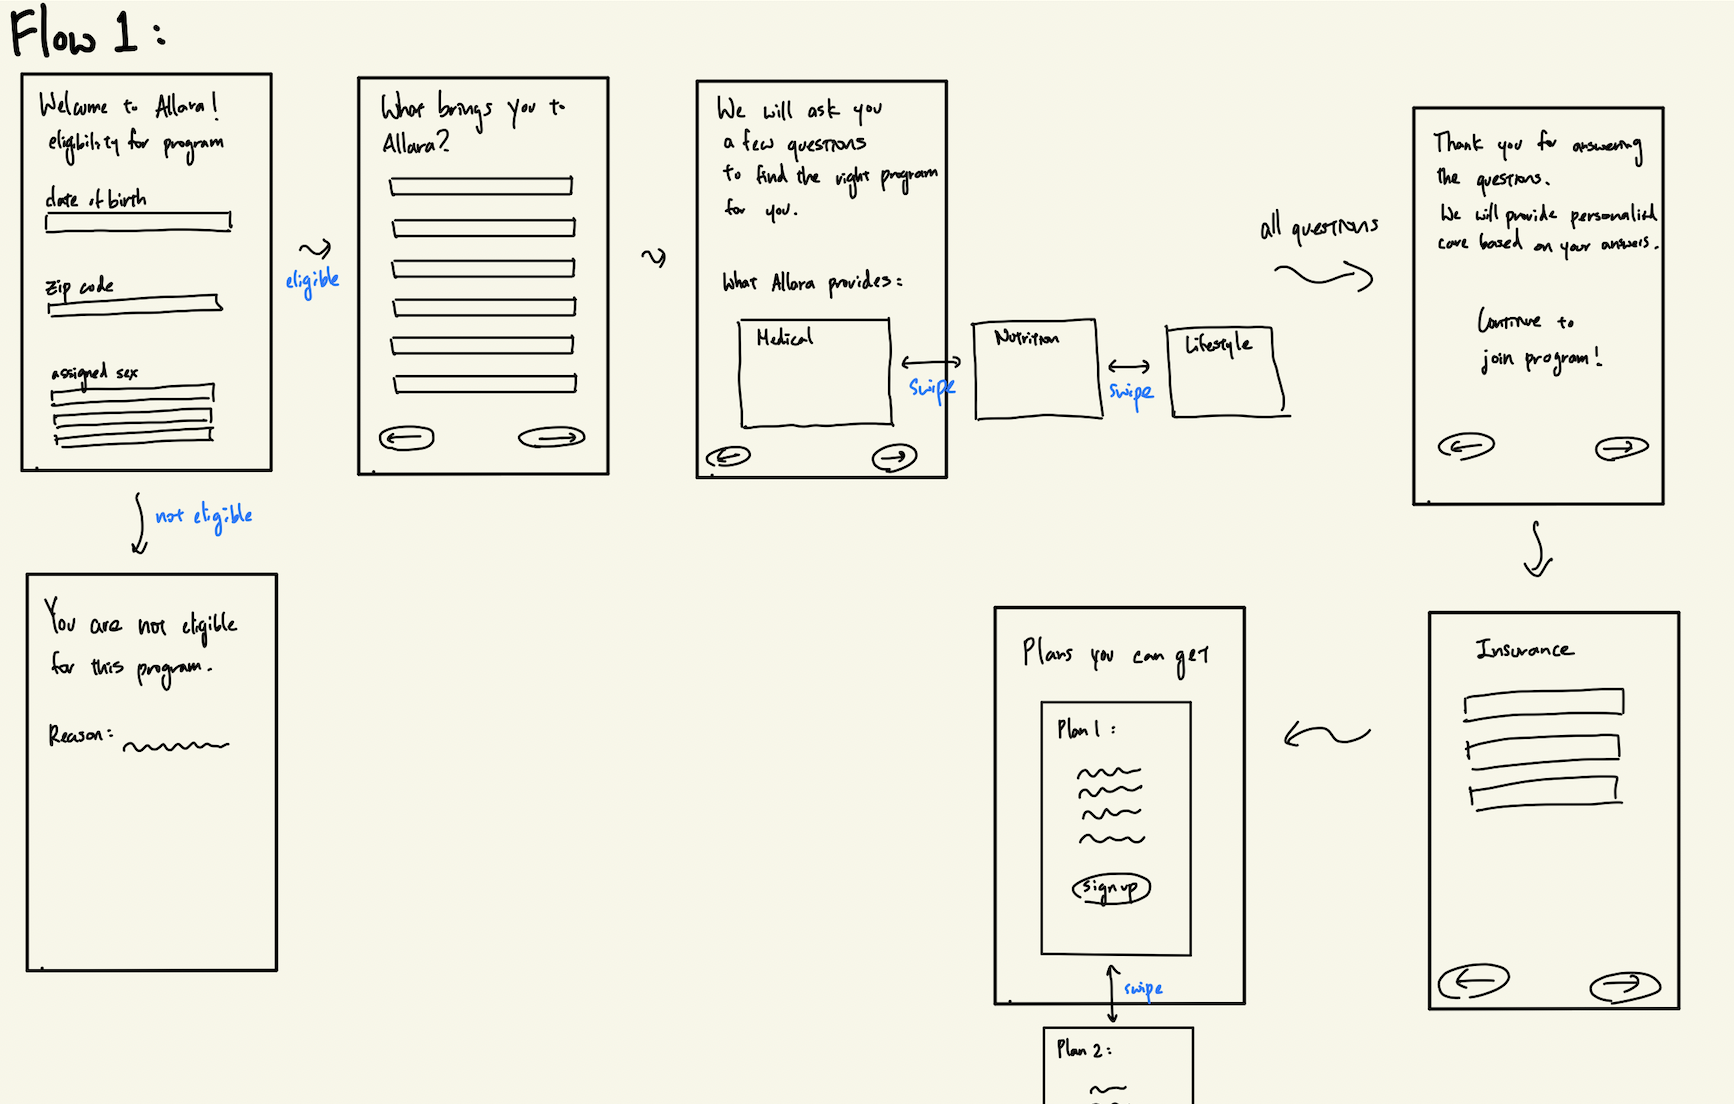 Flow 1:
Welcome to Allara!
eligibility for program
date of birth
Zip code
assigned sex
eligible
not eligible
You are not eligible
for this program.
Reason:
What brings you to
Allara?
We will ask you
a few questions
to find the right program
for you.
What Allara provides:
Medical
swipe
Nutrition
swipe
Lifestyle
all questions
Thank you for answering
the questions.
We will provide personalized
care based on your answers.
Continue to
join program!
Insurance
Plans you can get
Plan 1:
sign up
swipe
Plan 2: